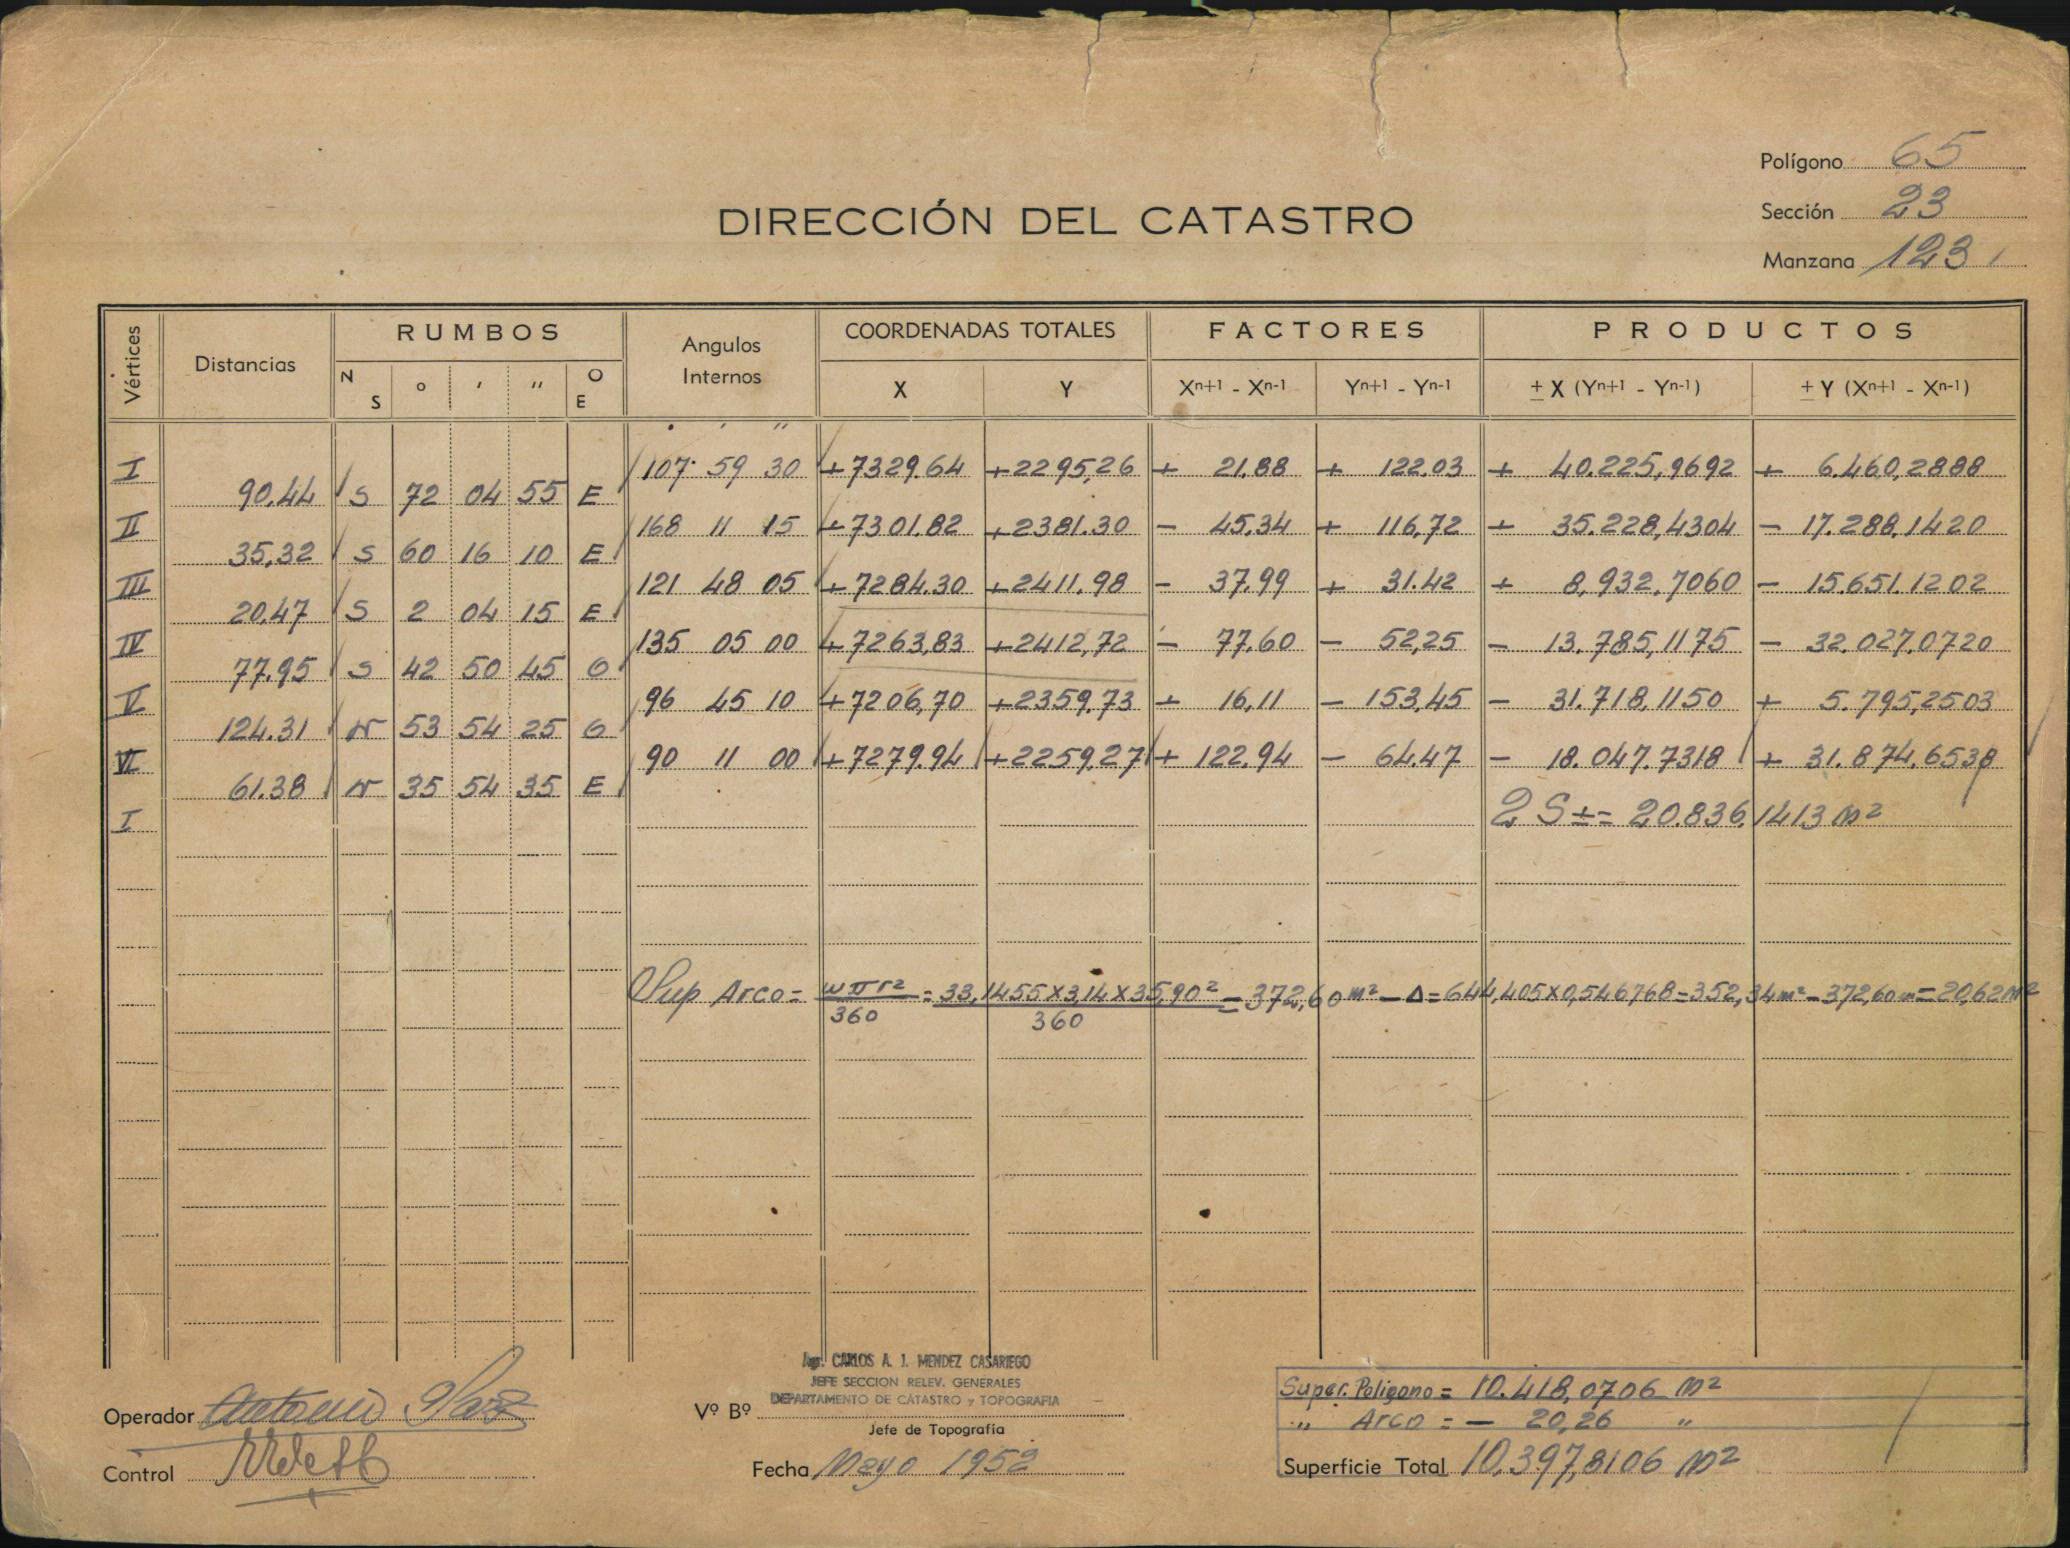 Polígono 65
Sección 23
Manzana 123
DIRECCIÓN DEL CATASTRO
Vértices Distancias RUMBOS Angulos Internos COORDENADAS TOTALES FACTORES PRODUCTOS
N S ° ' " O E X Y Xn+1 - Xn-1 Yn+1 - Yn-1 ± X (Yn+1 - Yn-1) ± Y (Xn+1 - Xn-1)
° ' "
I 107 59 30 +7329.64 +2295,26 + 21.88 + 122.03 + 40.225,9692 + 6.460,2888
90,44 S 72 04 55 E
II 168 11 15 +7301.82 +2381.30 - 45,34 + 116,72 + 35.228,4304 - 17.288,1420
35,32 S 60 16 10 E
III 121 48 05 +7284.30 +2411,98 - 37.99 + 31.42 + 8,932.7060 - 15.651.1202
20,47 S 2 04 15 E
IV 135 05 00 +7263,83 +2412,72 - 77.60 - 52,25 - 13.785,1175 - 32.027.0720
77.95 S 42 50 45 O
V 96 45 10 +7206,70 +2359,73 + 16,11 - 153,45 - 31.718,1150 + 5.795,2503
124.31 N 53 54 25 O
VI 90 11 00 +7279.94 +2259,27 + 122.94 - 64.47 - 18.047.7318 + 31.874,6538
61.38 N 35 54 35 E
I 2 S ± = 20.836,1413 m²
Sup Arco = wπr²/360 = 33,1455x3,14x35,90²/360 = 372,60 m² - Δ = 644,405x0,546768=352,34m² - 372,60m = 20,62m²
Agr. CARLOS A. J. MENDEZ CASARIEGO
JEFE SECCION RELEV. GENERALES
DEPARTAMENTO DE CATASTRO y TOPOGRAFIA
Operador Antonio
Vº Bº
Jefe de Topografía
Control
Fecha Mayo 1952
Super. Poligono = 10.418,0706 m²
" Arco = - 20,26 "
Superficie Total 10.397,8106 m²